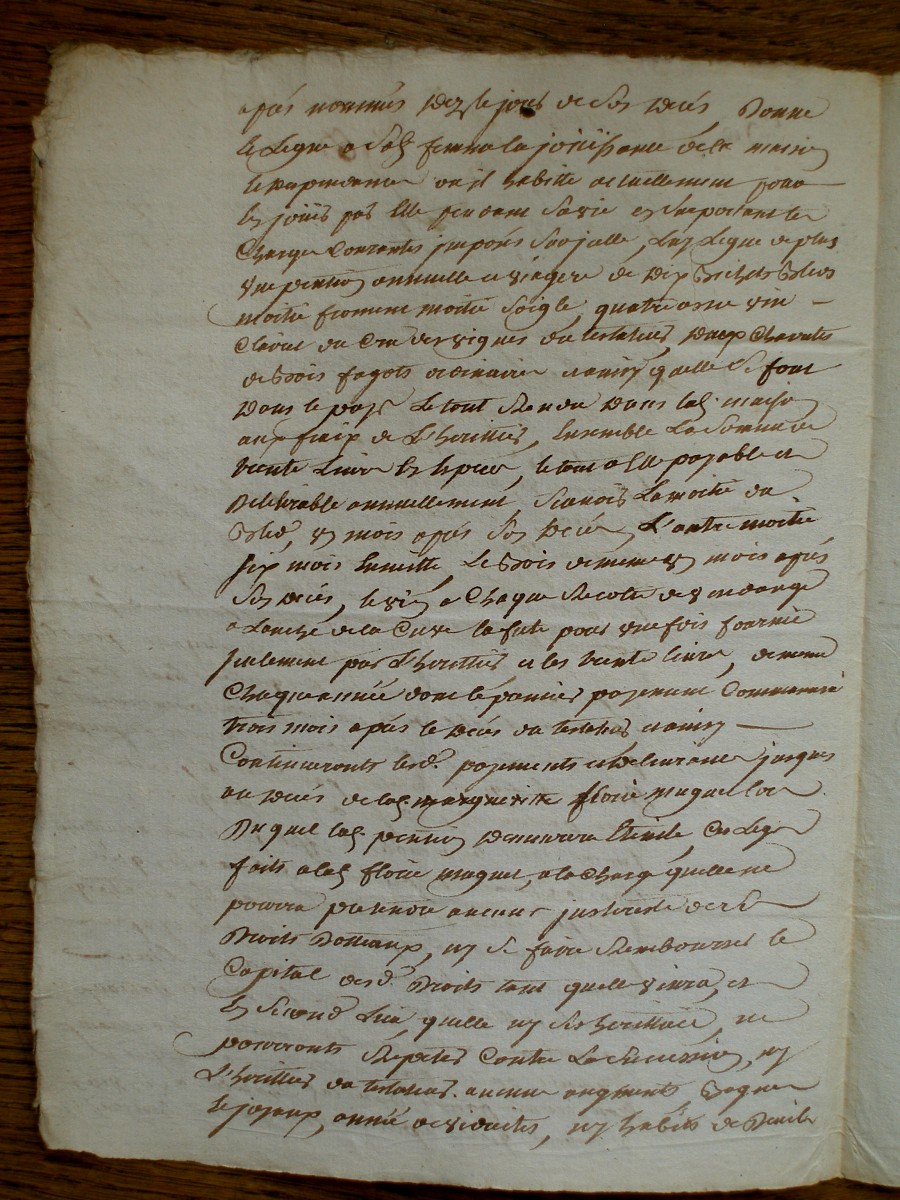 après nommés dez le jour de son décés, Donne
et Legue a sad. femme la joüissance de la maison
et dependances ou il habitte actuellement pour
en joüir par elle pendant sa vie en suportant les
charges courantes imposés sur jcelle, Luy Legue de plus
une pention annuelle et viagere de dix bichets bled
moitié froment moitié soigle, quatre anné vin
clairet du cru des vignes du testateur, deux charetés
de bois fagots ordinaires ainsy qu'elle se font
dans le pays le tout rendu dans lad. maison
aux fraix de L'heritier, Ensemble La somme de
trente Livres en espece, le tout a elle payable et
délivrable annuellement, scavoir La moitié du
bled, un mois après son décés, L'autre moitié
six mois ensuitte, Le bois de meme un mois après
son décés, le vin a chaque recolte de vendange
a L'anche de la cuve la futé pour une fois fournie
seulement par L'heritier et les trente livres, de meme
chaque année dont le premier payement commencera
trois mois après le décés du testateur et ainsy
continueront lesd. payements et delivrances jusques
au décés de lad. margueritte floric maguet lors
Duquel lad. pention demeurera éteinte, Ces Legs
faits a lad. floric maguet, a la charge qu'elle ne
pourra prendre aucune justice de ses
Droits Dotaux, ny se faire rembourser le
capital desd. Droits tant quelle vivra, et
En second Lieu, quelle ny ses heritiers, ne
pourront repeter contre La succession, ny
L'heritier du testateur aucun augment, bagues
et joyaux, année de viduités, ny habits de Deuil